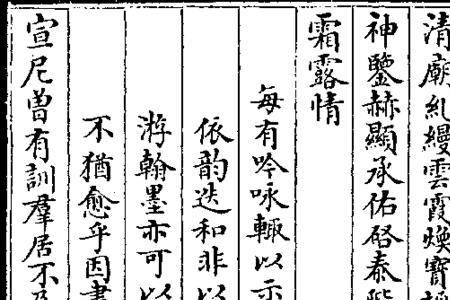 清廟糺縵雲霞煥寶
神鑒赫顯承佑啓泰階
霜露情
每有吟咏輒以示
依韵迭和非以
游翰墨亦可以
不猶愈乎因書
宣尼曾有訓羣居不及